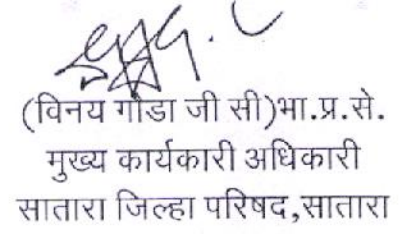 (विनय गौडा जी सी)भा.प्र.से.
मुख्य कार्यकारी अधिकारी
सातारा जिल्हा परिषद,सातारा